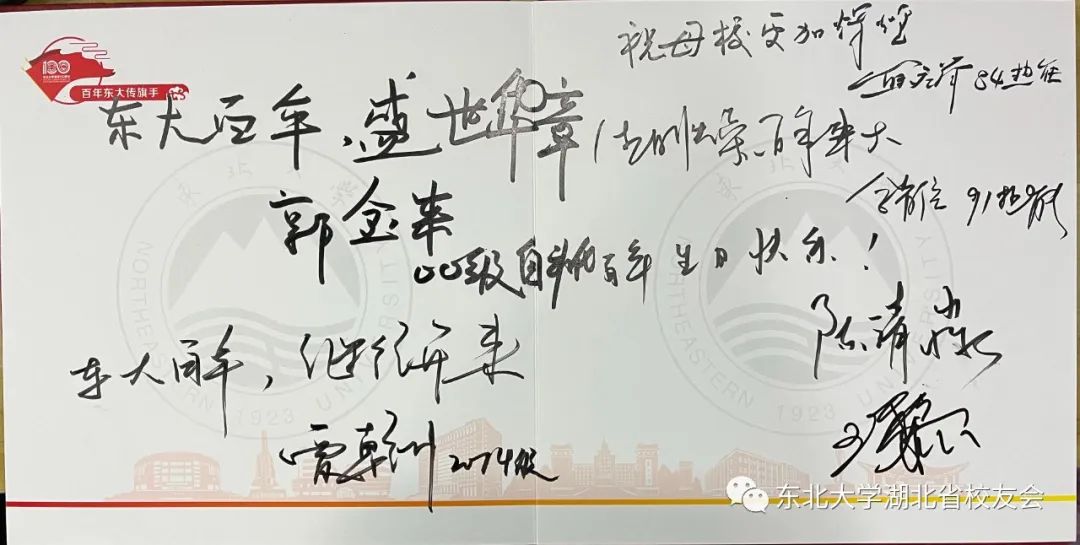 100
百年东大传旗手
祝母校更加辉煌
84热能
东大百年,盛世华章
百年东大
郭金来
00级自动化
百年生日快乐!
东大百年,继往开来
2014级
陈清
東北大學
NORTHEASTERN UNIVERSITY
1923
東北大學
NORTHEASTERN UNIVERSITY
1923
东北大学湖北省校友会